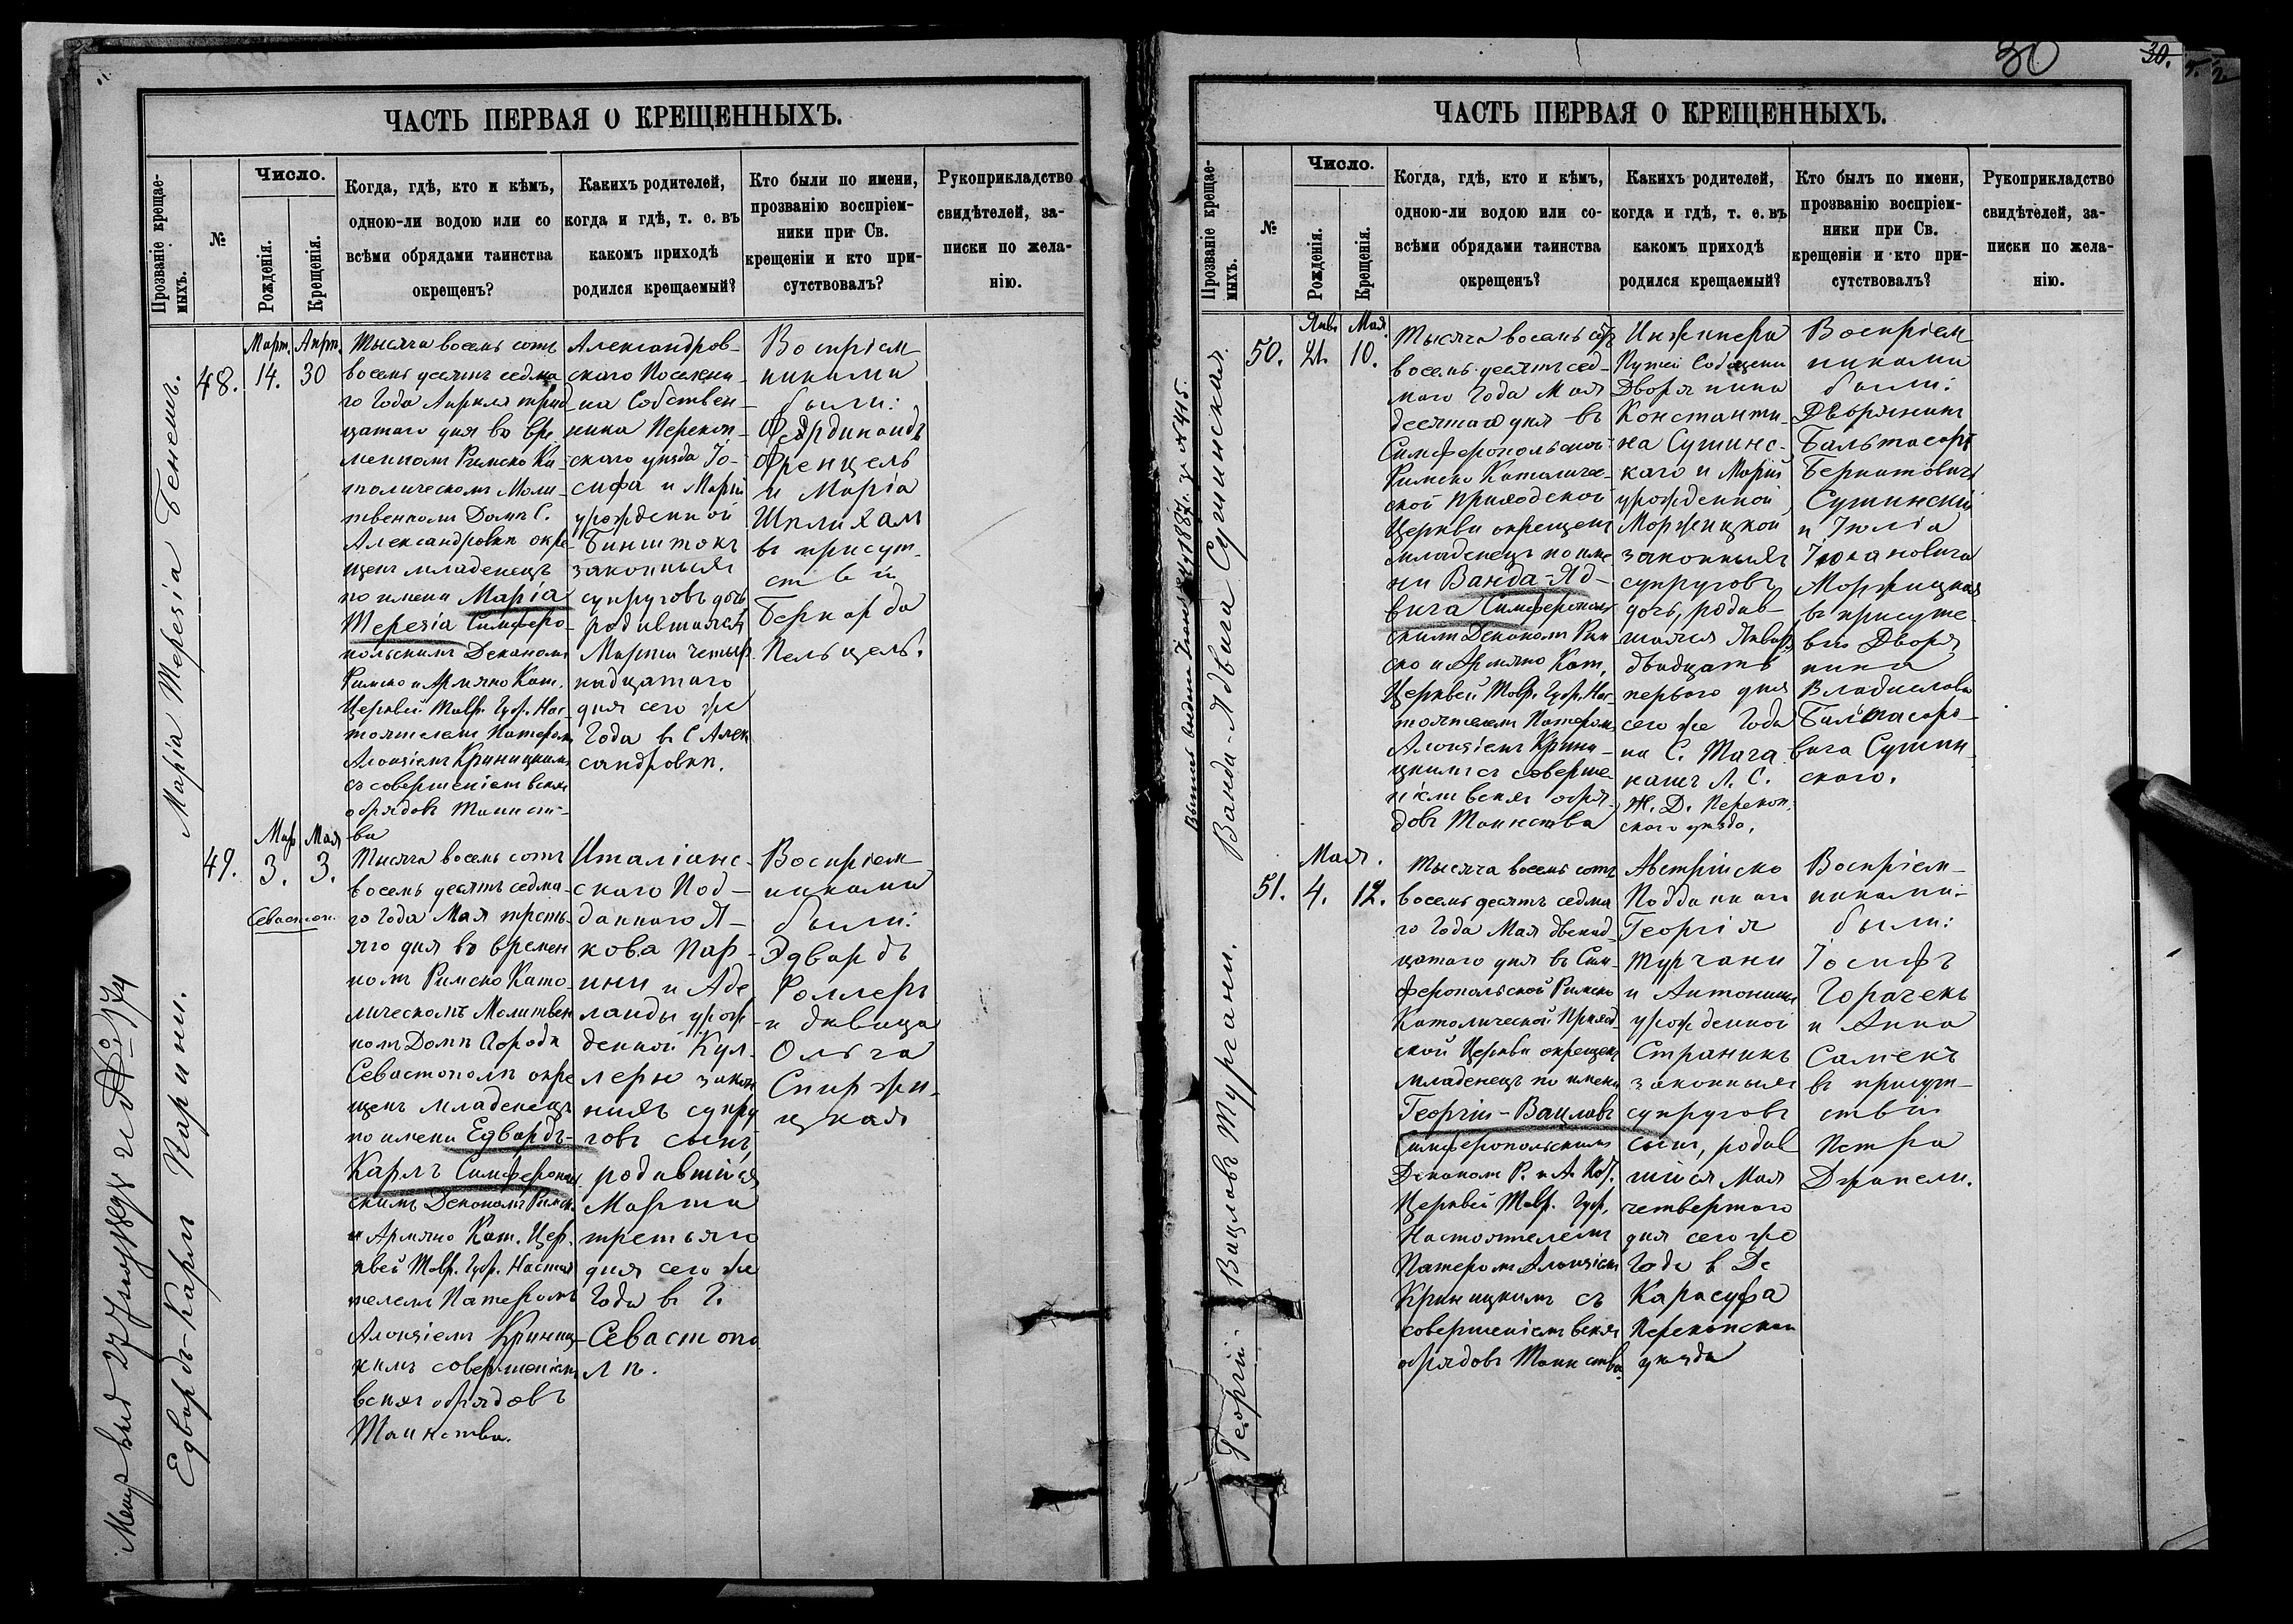 ЧАСТЬ ПЕРВАЯ О КРЕЩЕННЫХЪ.
Прозваніе крещае-
мыхъ.
№
Число.
Рожденія.
Крещенія.
Когда, гдѣ, кто и кѣмъ,
одною-ли водою или со
всѣми обрядами таинства
окрещенъ?
Какихъ родителей,
когда и гдѣ, т. е. въ
какомъ приходѣ
родился крещаемый?
Кто были по имени,
прозванію воспріем-
ники при Св.
крещеніи и кто при-
сутствовалъ?
Рукоприкладство
свидѣтелей, за-
писки по жела-
нію.
Марія Терезія Бенешъ.
48.
Март.
14.
Апрѣ.
30
Тысяча восемь сотъ
восемь десятъ седма
го Года Апрѣля трид
цатаго дня во вре
менномъ Римско Ка-
толическомъ Моли-
твенномъ Домѣ С.
Александровки окре-
щенъ младенецъ
по имени Марія
Терезія Симферо-
польскимъ Деканомъ
Римско и Армяно Кат.
Церквей Тавр. Губ. Нас-
тоятелемъ Патеромъ
Алоизіемъ Криницкимъ
съ совершеніемъ всѣхъ
обрядовъ Таинст-
ва
Александров-
скаго Поселени-
на Собствен-
ника Перекоп-
скаго уѣзда Іо-
сифа и Маріи
урожденной
Бинштокъ
законныхъ
супруговъ дочь
родившаяся
Марта четыр
надцатаго
дня сего же
Года въ С Алек
сандровкѣ.
Воспріем
никами
были:
Фердинандъ
Френцель
и Марія
Шплихал
въ присут-
ствіи
Бернарда
Пельцель.
Едвардъ-Карлъ Парини.
49.
Мар
3.
Мая
3.
Севастоп.
Тысяча восемь сотъ
восемь десятъ седма-
го Года Мая треть-
яго дня во времен
номъ Римско Като-
лическомъ Молитвен
номъ Домѣ Города
Севастополѣ окре
щенъ младенецъ
по имени Едвардъ-
Карлъ Симферополь
скимъ Деканомъ Римск.
и Армяно Кат. Цер-
квей Тавр. Губ. Настоя
телемъ Патеромъ
Алоизіемъ Криниц-
кимъ совершеніемъ
всѣхъ обрядовъ
Таинства.
Италіанс-
скаго Под-
даннаго Я-
кова Пар-
ини и Аде
лаиды урож
денной Кул-
леры закон
ныхъ супру
говъ сынъ,
родившійся
Марта
третьяго
дня сего же
Года въ Г.
Севастопо
лѣ.
Воспріем-
никами
были:
Эдвардъ
Роллеръ
и дѣвица
Ольга
Спиржи-
цкая
ЧАСТЬ ПЕРВАЯ О КРЕЩЕННЫХЪ.
30
30.
Прозваніе крещае-
мыхъ.
№
Число.
Рожденія.
Крещенія.
Когда, гдѣ, кто и кѣмъ,
одною-ли водою или со-
всѣми обрядами таинства
окрещенъ?
Какихъ родителей,
когда и гдѣ, т. е. въ
какомъ приходѣ
родился крещаемый?
Кто былъ по имени,
прозванію воспріем-
ники при Св.
крещеніи и кто при-
сутствовалъ?
Рукоприкладство
свидѣтелей, за-
писки по жела-
нію.
1887 г. за № 445.
Ванда-Ядвига Сушинская.
50.
Янв.
21.
Мая.
10.
Тысяча восемь сотъ
восемь десятъ сед-
маго Года Мая
десятаго дня въ
Симферопольской
Римско Католиче-
ской приходской
Церкви окрещенъ
младенецъ по име
ни Ванда-Яд-
вига Симферополь
скимъ Деканомъ Рим
ско и Армяно Кат.
Церквей Тавр. Губ. Нас-
тоятелемъ Патеромъ
Алоизіемъ Крини-
цкимъ съ соверше-
ніемъ всѣхъ обря-
довъ Таинства
Инжинера
Путей Собщени
Дворянина
Константи-
на Сушинс-
каго и Маріи
урожденной
Моржицкой
законныхъ
супруговъ
дочь, родив-
шаяся Января
двадцать
перваго дня
сего же Года
на С. Тага
нашъ Л. С.
Ж. Д. Перекоп.
скаго уѣзда.
Воспріем
никами
были:
Дворянинъ
Бальтасаръ
Бернатовичъ
Сушинскій
и Юлія
Іоановна
Моржицкая
въ присутс
віи Дворя
нина
Владислава
Бальтасаро-
вича Сушин-
скаго.
Георгій-Вацлавъ Тургани.
51.
Мая.
4.
12.
Тысяча восемь сотъ
восемь десятъ седма
го Года Мая двенад-
цатаго дня въ Сим-
феропольской Римско
Католической Приход-
ской Церкви окрещенъ
младенецъ по имени
Георгій-Вацлавъ
Симферопольскимъ
Деканомъ Р. и А. Кат.
Церквей Тавр. Губ.
Настоятелемъ
Патеромъ Алоизіемъ
Криницкимъ съ
совершеніемъ всѣхъ
обрядовъ Таинства
Австрійско
Подданнаго
Георгія
Тургани
и Антонины
урожденной
Странихъ
законныхъ
супруговъ
сынъ, родив
шійся Мая
четвертаго
дня сего же
Года в Де
Карасуфа
Перекопскаго
уѣзда
Воспріем-
никами
были:
Іосифъ
Горачекъ
и Анна
Самекъ
въ присут-
ствіи
Петра
Джанели.